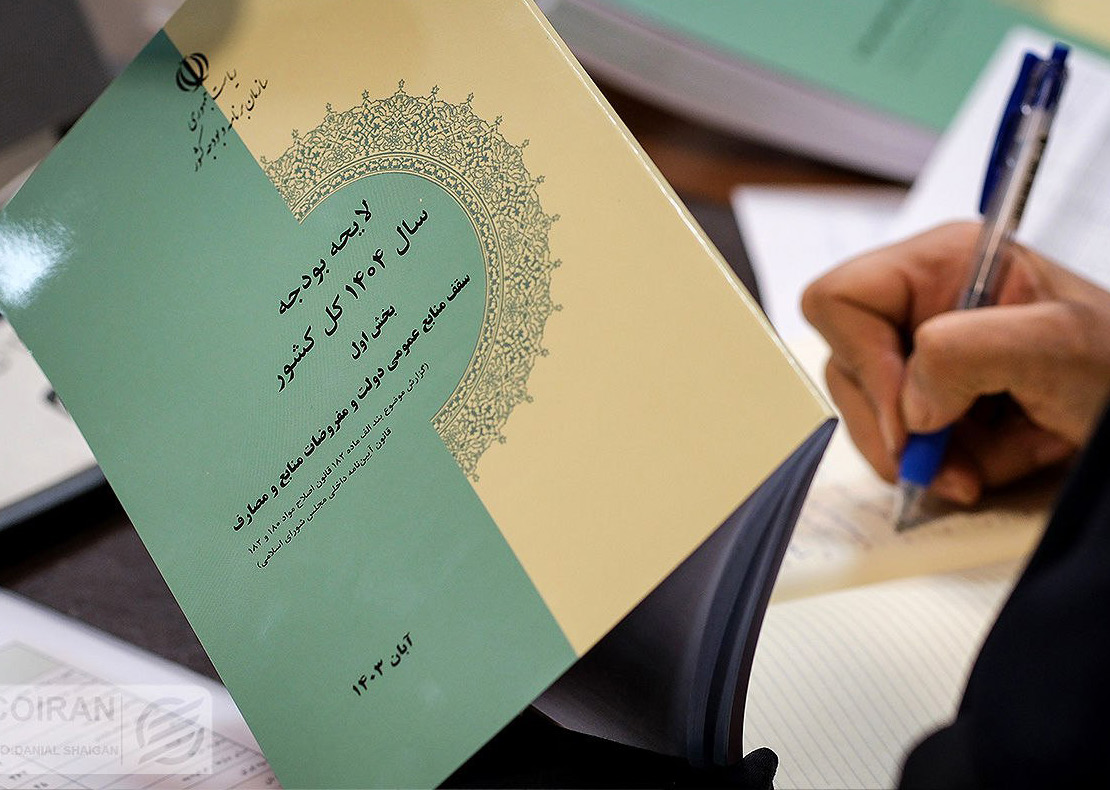 ریاست جمهوری
سازمان برنامه و بودجه کشور
لایحه بودجه
سال ۱۴۰۴ کل کشور
بخش اول
سقف منابع عمومی دولت و مفروضات منابع و مصارف
(گزارش موضوع بند الف ماده ۱۸۲ قانون اصلاح مواد ۱۸۰ و ۱۸۲
قانون آیین‌نامه داخلی مجلس شورای اسلامی)
آبان ۱۴۰۳
COIRAN
DANIAL SHAIGAN